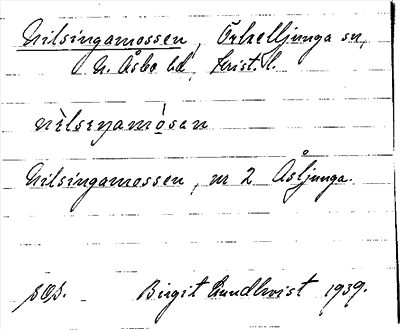 Nilsingamossen, Örkelljunga sn,
N. Åsbo hd, Krist. l.
nilsiŋamósan
Nilsingamossen, nr 2 Åsljunga.
SOS. Birgit Lundkvist 1939.